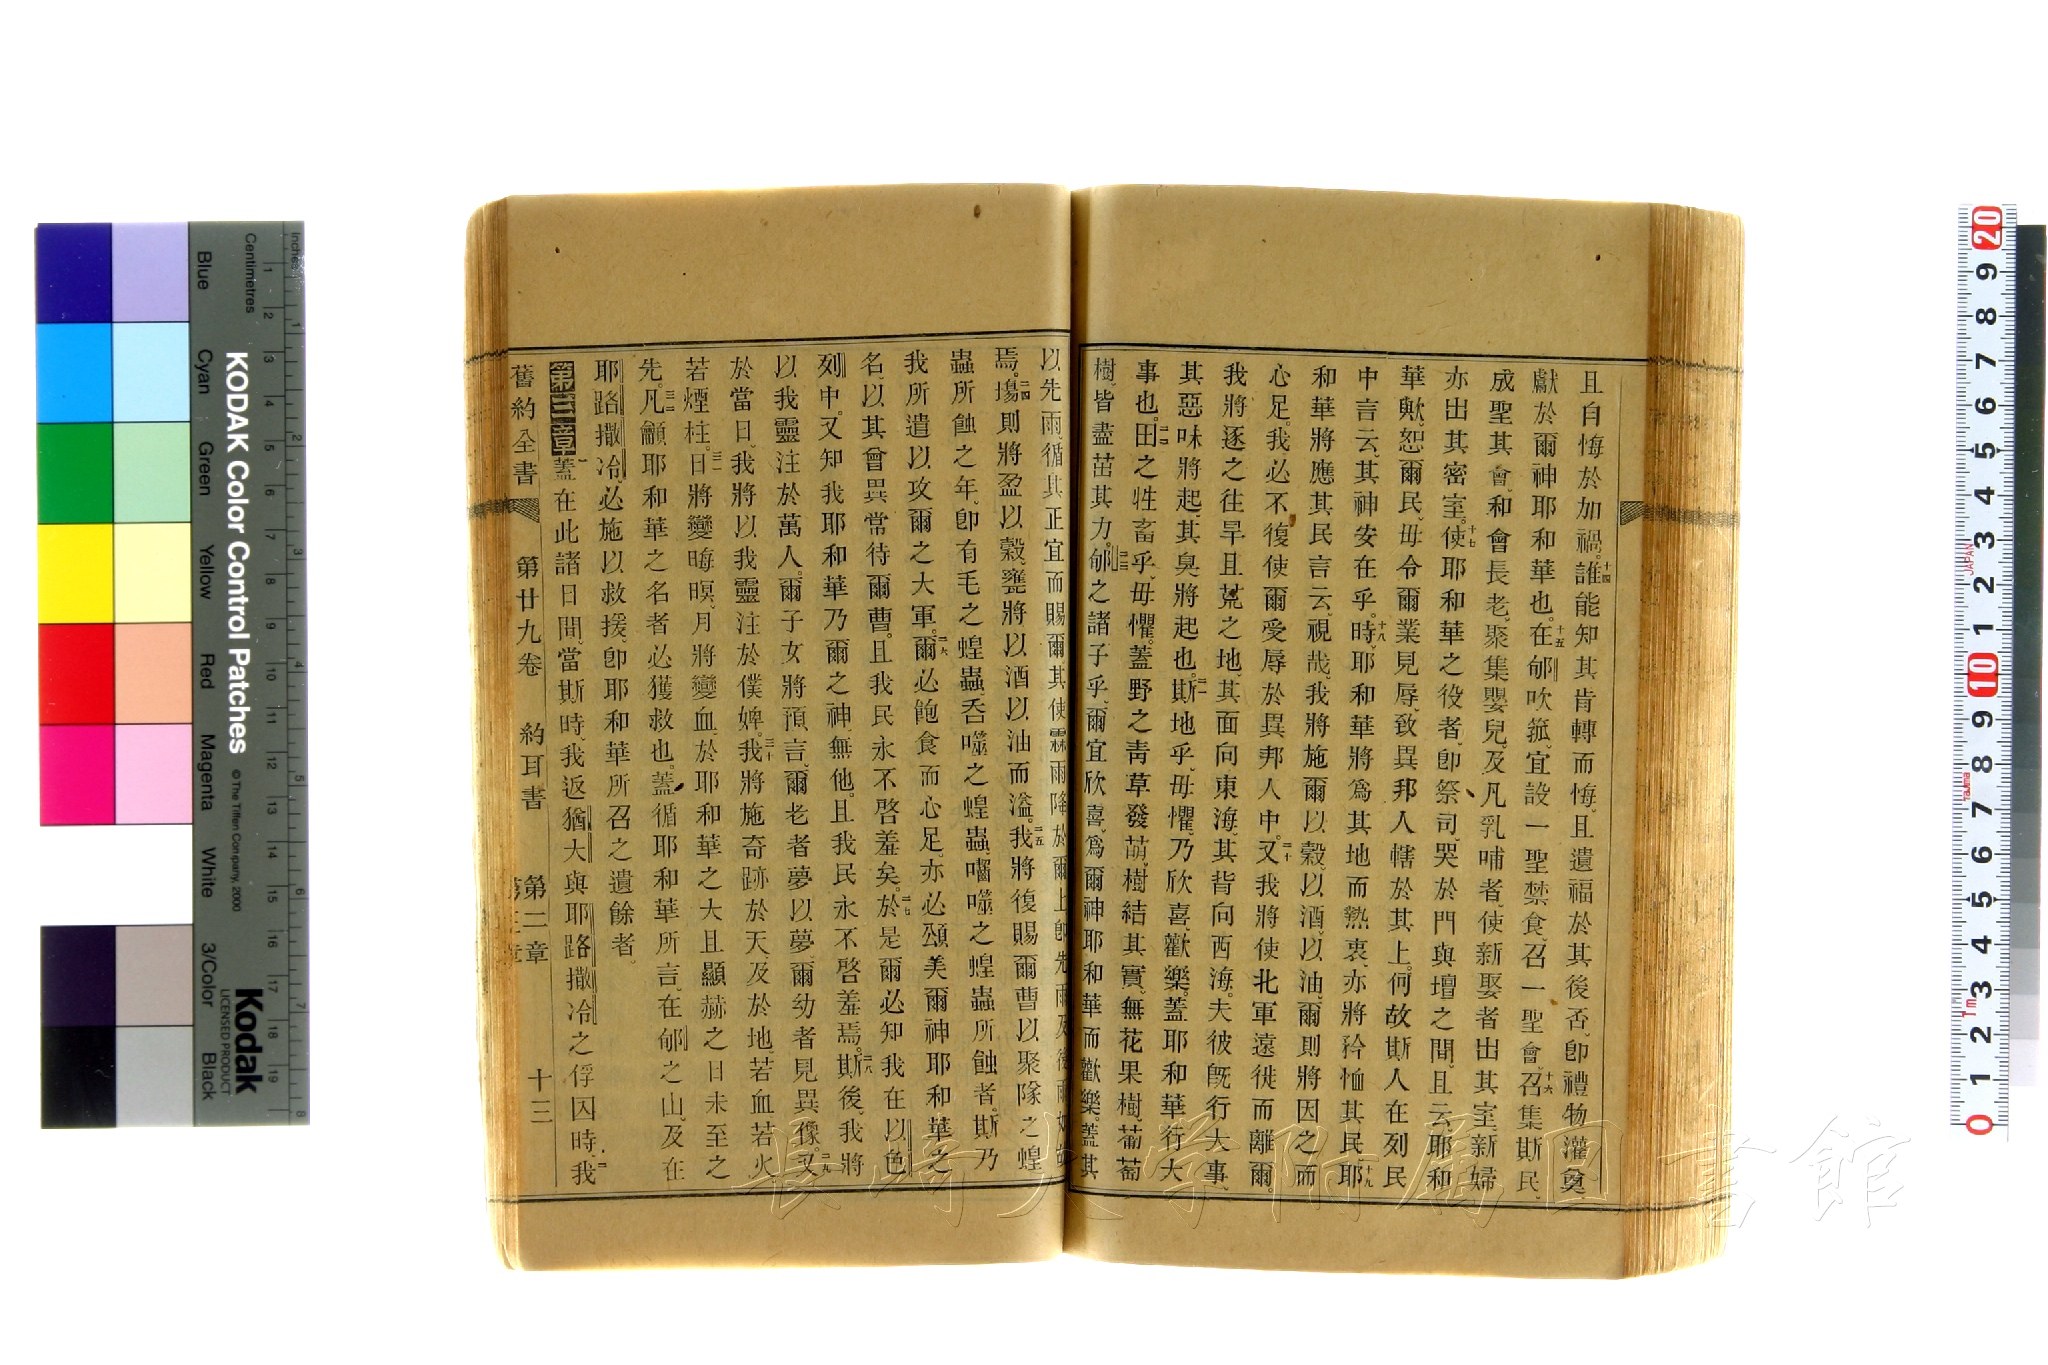 且自悔於加禍。十四誰能知其肯轉而悔、且遺福於其後否、卽禮物灌奠、
獻於爾神耶和華也。十五在郇吹箛、宜設一聖禁食、召一聖會、十六召集斯民、
成聖其會、和會長老、聚集嬰兒、及凡乳哺者、使新娶者出其室、新婦
亦出其密室。十七使耶和華之役者、卽祭司、哭於門與壇之間、且云、耶和
華歟、恕爾民、毋令爾業見辱、致異邦人轄於其上。何故斯人在列民
中言云、其神安在乎。十八時、耶和華將爲其地而熱衷、亦將矜恤其民、十九耶
和華將應其民言云、視哉、我將施爾以穀、以酒、以油、爾則將因之而
心足。我必不復使爾受辱於異邦人中。二十又我將使北軍遠徙而離爾。
我將逐之往旱且荒之地、其面向東海、其背向西海。夫彼旣行大事、
其惡味將起、其臭將起也。二一斯地乎、毋懼、乃欣喜、歡樂。蓋耶和華行大
事也。二二田之牲畜乎、毋懼。蓋野之靑草發萌、樹結其實、無花果樹、葡萄
樹、皆盡苗其力。二三郇之諸子乎、爾宜欣喜、爲爾神耶和華而歡樂。蓋其
以先雨、循其正宜而賜爾、其使霖雨降於爾上、卽先雨及後雨如故
焉。二四場則將盈以穀、甕將以酒以油而溢。二五我將復賜爾曹以聚隊之蝗
蟲所蝕之年、卽有毛之蝗蟲、吞噬之蝗蟲、嚙噬之蝗蟲所蝕者、斯乃
我所遣以攻爾之大軍。二六爾必飽食而心足。亦必頌美爾神耶和華之
名、以其曾異常待爾曹。且我民永不啓羞矣。二七於是爾必知我在以色
列中。又知我耶和華乃爾之神、無他。且我民永不啓羞焉。二八斯後、我將
以我靈注於萬人。爾子女將預言、爾老者夢以夢、爾幼者見異像。二九又
於當日、我將以我靈注於僕婢。三十我將施奇跡於天、及於地、若血若火
若煙柱。三一日將變晦暝、月將變血、於耶和華之大且顯赫之日未至之
先。三二凡籲耶和華之名者、必獲救也。蓋循耶和華所言、在郇之山、及在
耶路撒冷、必施以救援。卽耶和華所召之遺餘者。
第三章一蓋在此諸日間、當斯時、我返猶大與耶路撒冷之俘囚時、二我
舊約全書 第廿九卷 約耳書 第二章 第三章 十三
長崎大学附属図書館
KODAK Color Control Patches
© The Tiffen Company, 2000
Kodak
LICENSED PRODUCT
Inches
Centimetres
Blue Cyan Green Yellow Red Magenta White 3/Color Black
1 2 3 4 5 6 7 8 9 10 11 12 13 14 15 16 17 18 19
1 2 3 4 5 6 7 8
0 1 2 3 4 5 6 7 8 9 10 1 2 3 4 5 6 7 8 9 20
1m Tajima JAPAN